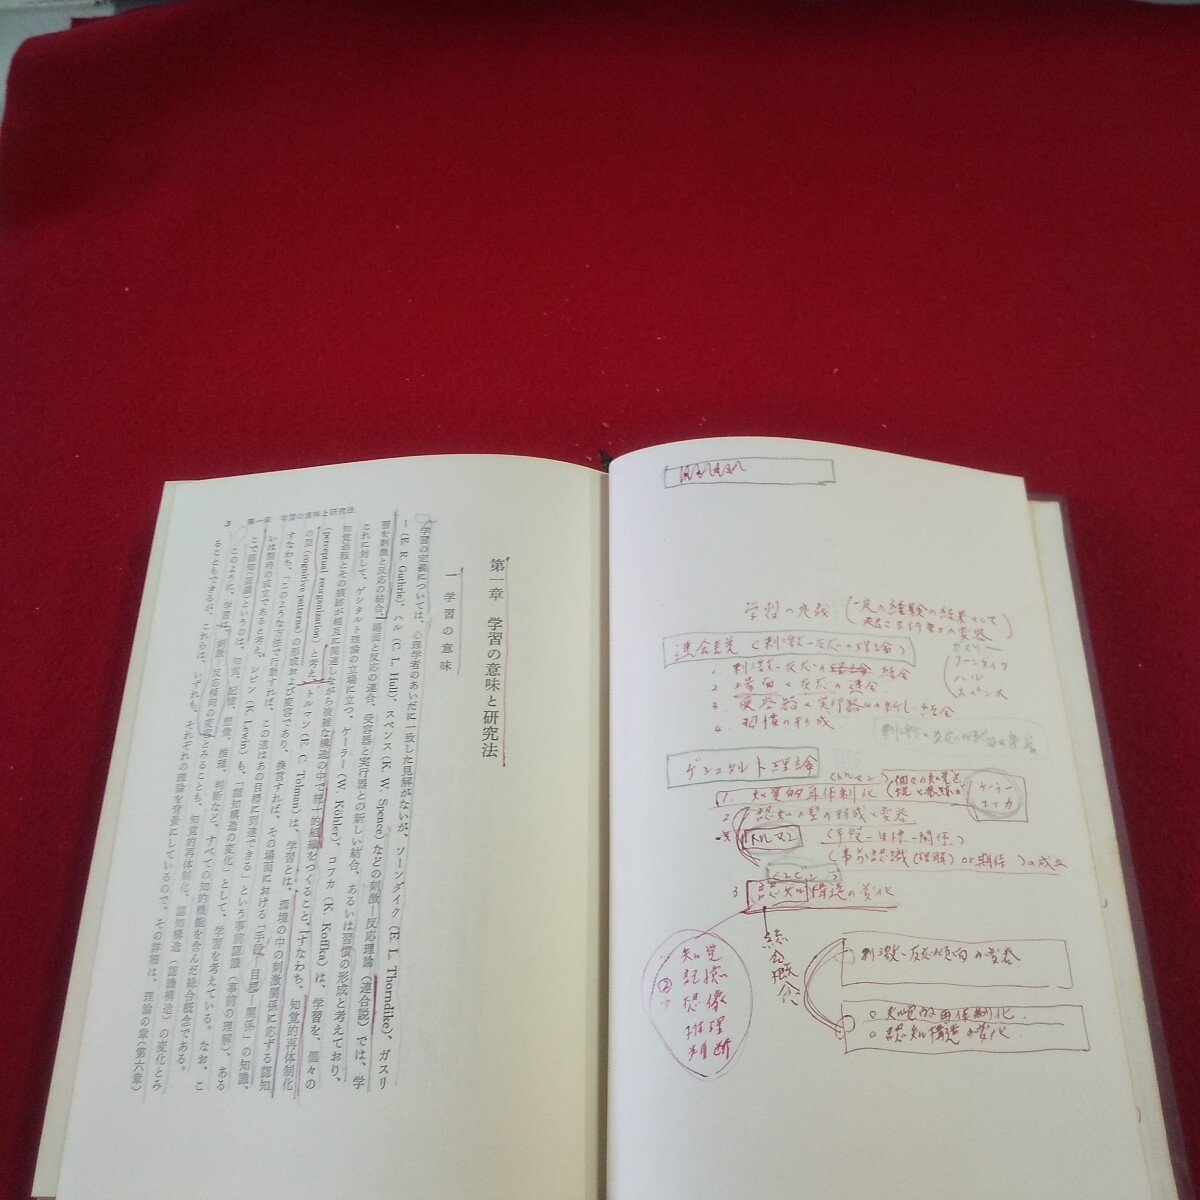 第一章　学習の意味と研究法
一　学習の意味
学習の定義については、心理学者のあいだに一致した見解がないが、ソーンダイク(E. L. Thorndike)、ガスリ
ー(E. R. Guthrie)、ハル(C. L. Hull)、スペンス(K. W. Spence)などの刺激―反応理論(連合説)では、学
習を刺激と反応の結合、場面と反応の連合、受容器と実行器との新しい結合、あるいは習慣の形成と考えており、
これに対して、ゲシタルト理論の立場に立つ、ケーラー(W. Köhler)、コフカ(K. Koffka)は、学習を、個々の
知覚過程とその痕跡が相互に関連しながら複雑な構造の中で統一的組織をつくること、すなわち、知覚的再体制化
(perceptual reorganization)と考え、トルマン(E. C. Tolman)は、学習とは、環境の中の刺激関係に応ずる認知
の型(cognitive patterns)の形成および変容であり、換言すれば、その場面における「手段―目標―関係」の知識、
すなわち、「このような方法で行動すれば、この道はあの目標に到達できる」という事前認識(事前の理解)、ある
いは期待の成立であると考え、レビン(K. Lewin)も、「認知構造の変化」として、学習を考えている。なお、こ
こで認知(認識)というのは、知覚、記憶、想像、推理、判断など、すべての知的機能を含んだ綜合概念である。
このように、学習は、刺激―反応傾向の変容とみることも、知覚的再体制化、認知構造(認識構造)の変化とみ
ることもできるが、これらは、いずれも、それぞれの理論を背景にしているので、その詳細は、理論の章(第六章)
3　第一章　学習の意味と研究法
学習の定義(一定の経験の結果として
起こる行動の変容)
連合説(刺激―反応の理論)
ガスリー
ソーンダイク
ハル
スペンス
1. 刺激―反応の結合
2. 場面と反応の連合
3. 受容器と実行器との新しい結合
4. 習慣の形成
刺激―反応傾向の変容
ゲシタルト理論
1. 知覚的再体制化
ケーラー
コフカ
2. 認知の型の形成と変容
トルマン
(手段―目標―関係)
(事前認識(理解)or期待)の成立
(レビン)
3 認知構造の変化
綜合概念
知覚
記憶
想像
推理
判断
刺激―反応傾向の変容
○ 知覚的再体制化
○ 認知構造の変化